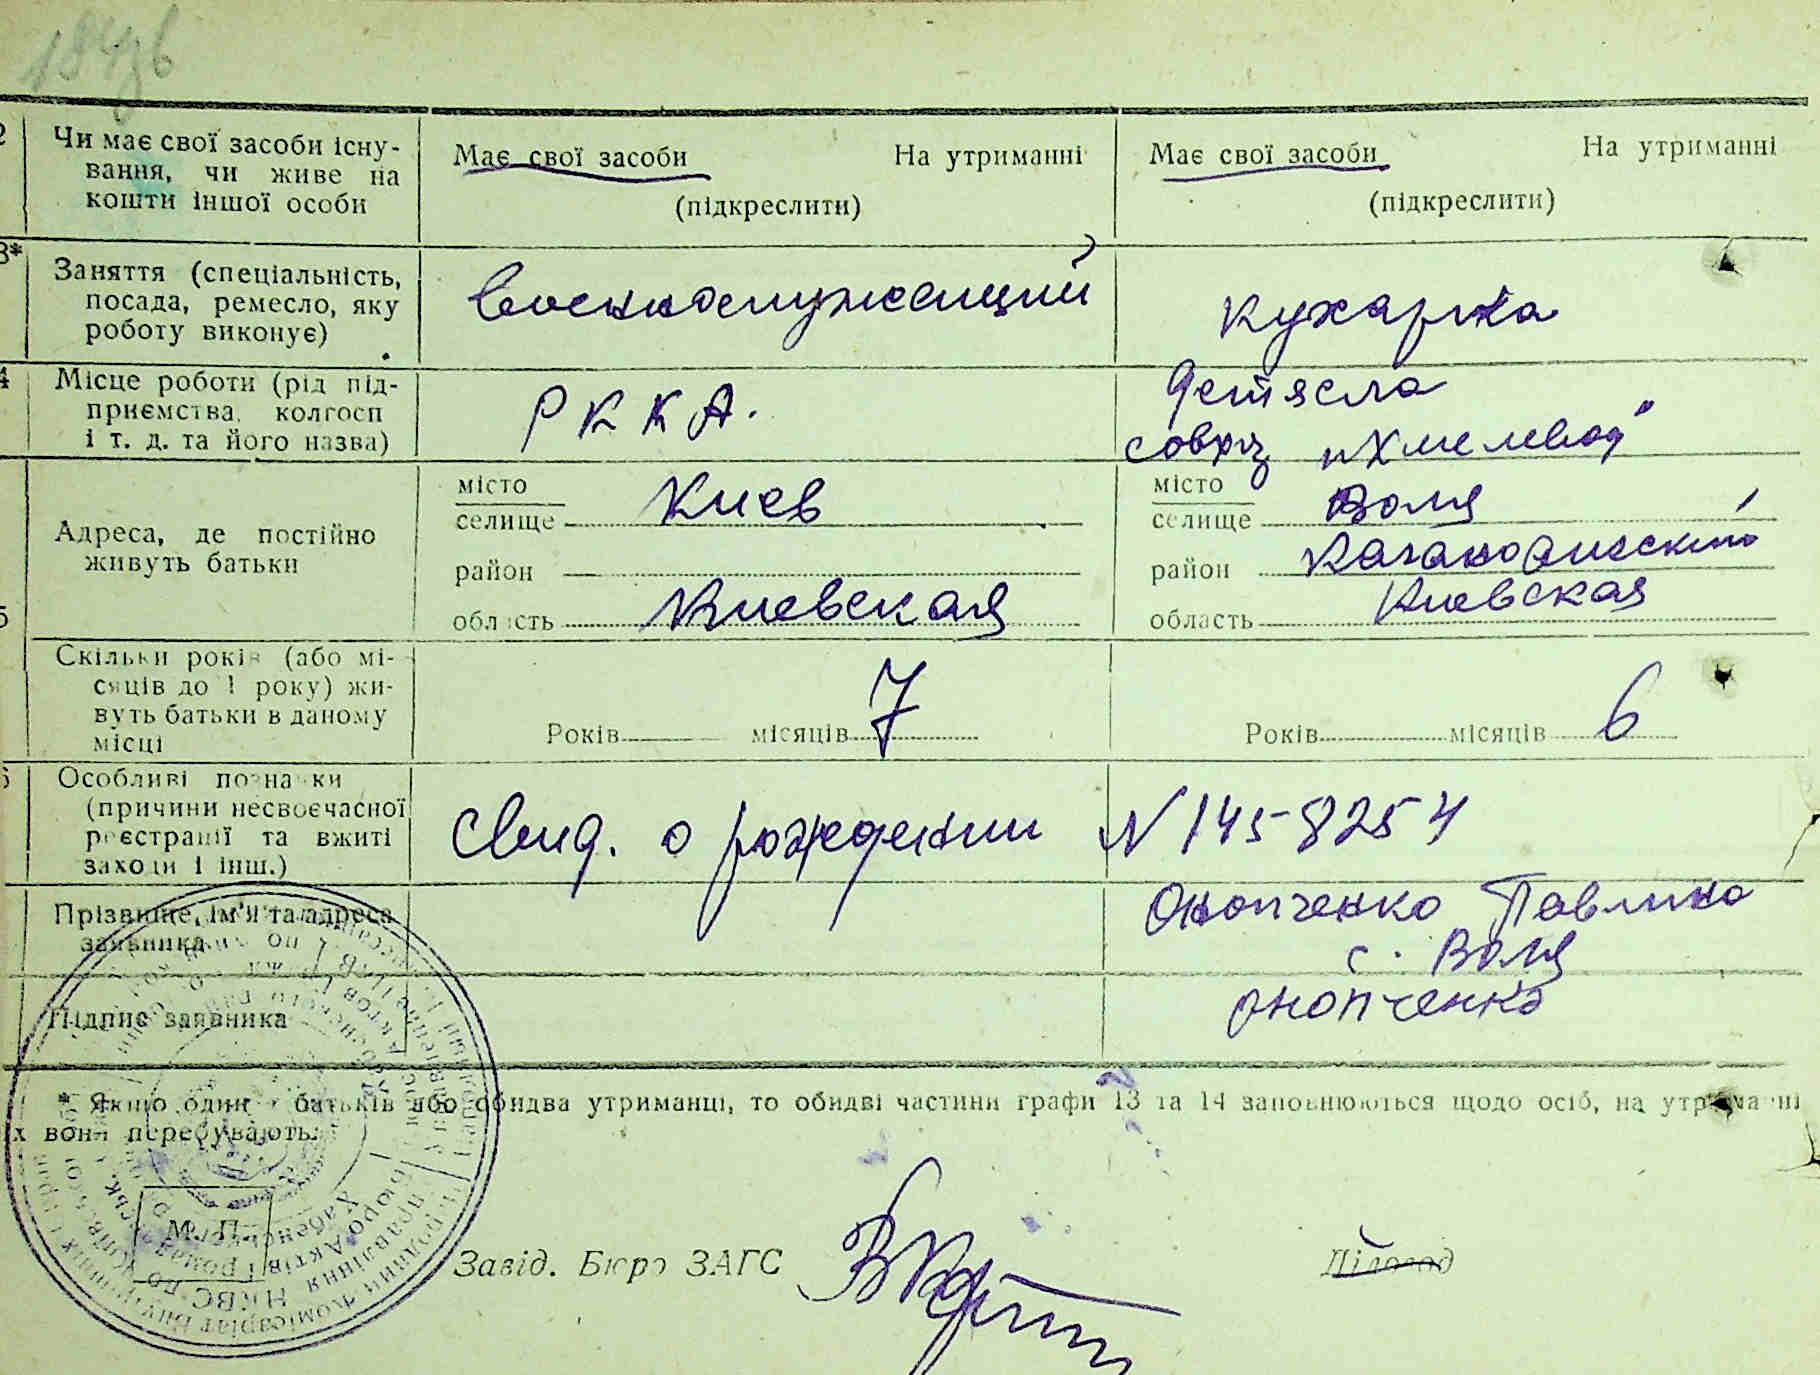 2 Чи має свої засоби існу-
вання, чи живе на
кошти іншої особи
Має свої засоби На утриманні
(підкреслити)
Має свої засоби На утриманні
(підкреслити)
3* Заняття (спеціальність,
посада, ремесло, яку
роботу виконує)
Военнослужащий
Кухарка
4 Місце роботи (рід під-
приємства, колгосп
і т. д. та його назва)
Р К К А.
Детясла
совхоз „Хмелевод"
5 Адреса, де постійно
живуть батьки
місто
селище Киев
район
область Киевская
місто
селище Воля
район
область Киевская
Скільки років (або мі-
сяців до 1 року) жи-
вуть батьки в даному
місці
Років місяців 7
Років місяців 6
6 Особливі познаки
(причини несвоєчасної
реєстрації та вжиті
заходи і інш.)
Свид. о рождении N 145-8254
Прізвище, ім'я та адреса
заявника
Онопченко Павлина
с. Воля
Підпис заявника
Онопченко
* Якщо один з батьків або обидва утриманці, то обидві частини графи 13 та 14 заповнюються щодо осіб, на утриманні
х вони перебувають.
М. П.
Завід. Бюро ЗАГС